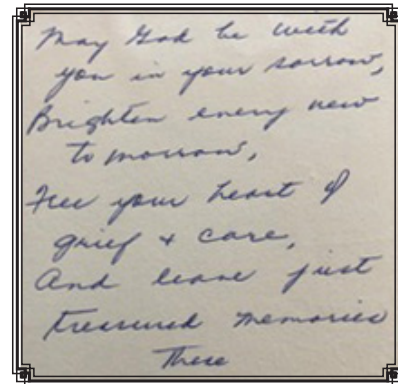 May God be with
you in your sorrow,
Brighten every new
tomorrow,
Free your heart of
grief & care,
And leave just
treasured memories
There